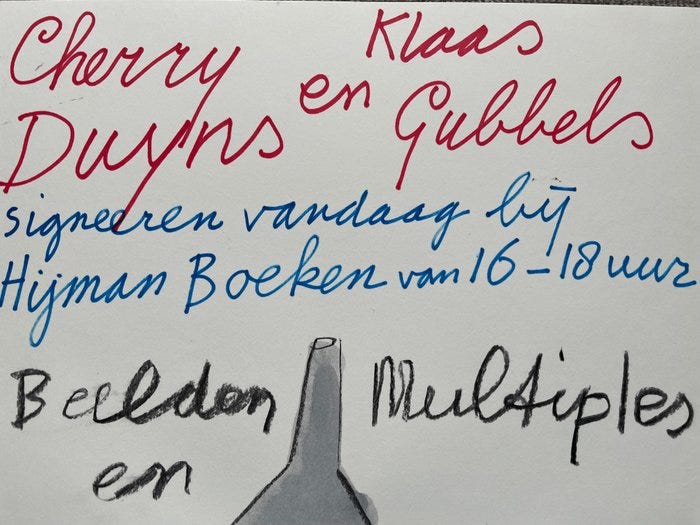 Cherry Duyns en Klaas Gubbels
signeeren vandaag bij
Hijman Boeken van 16 – 18 uur
Beelden en Multiples